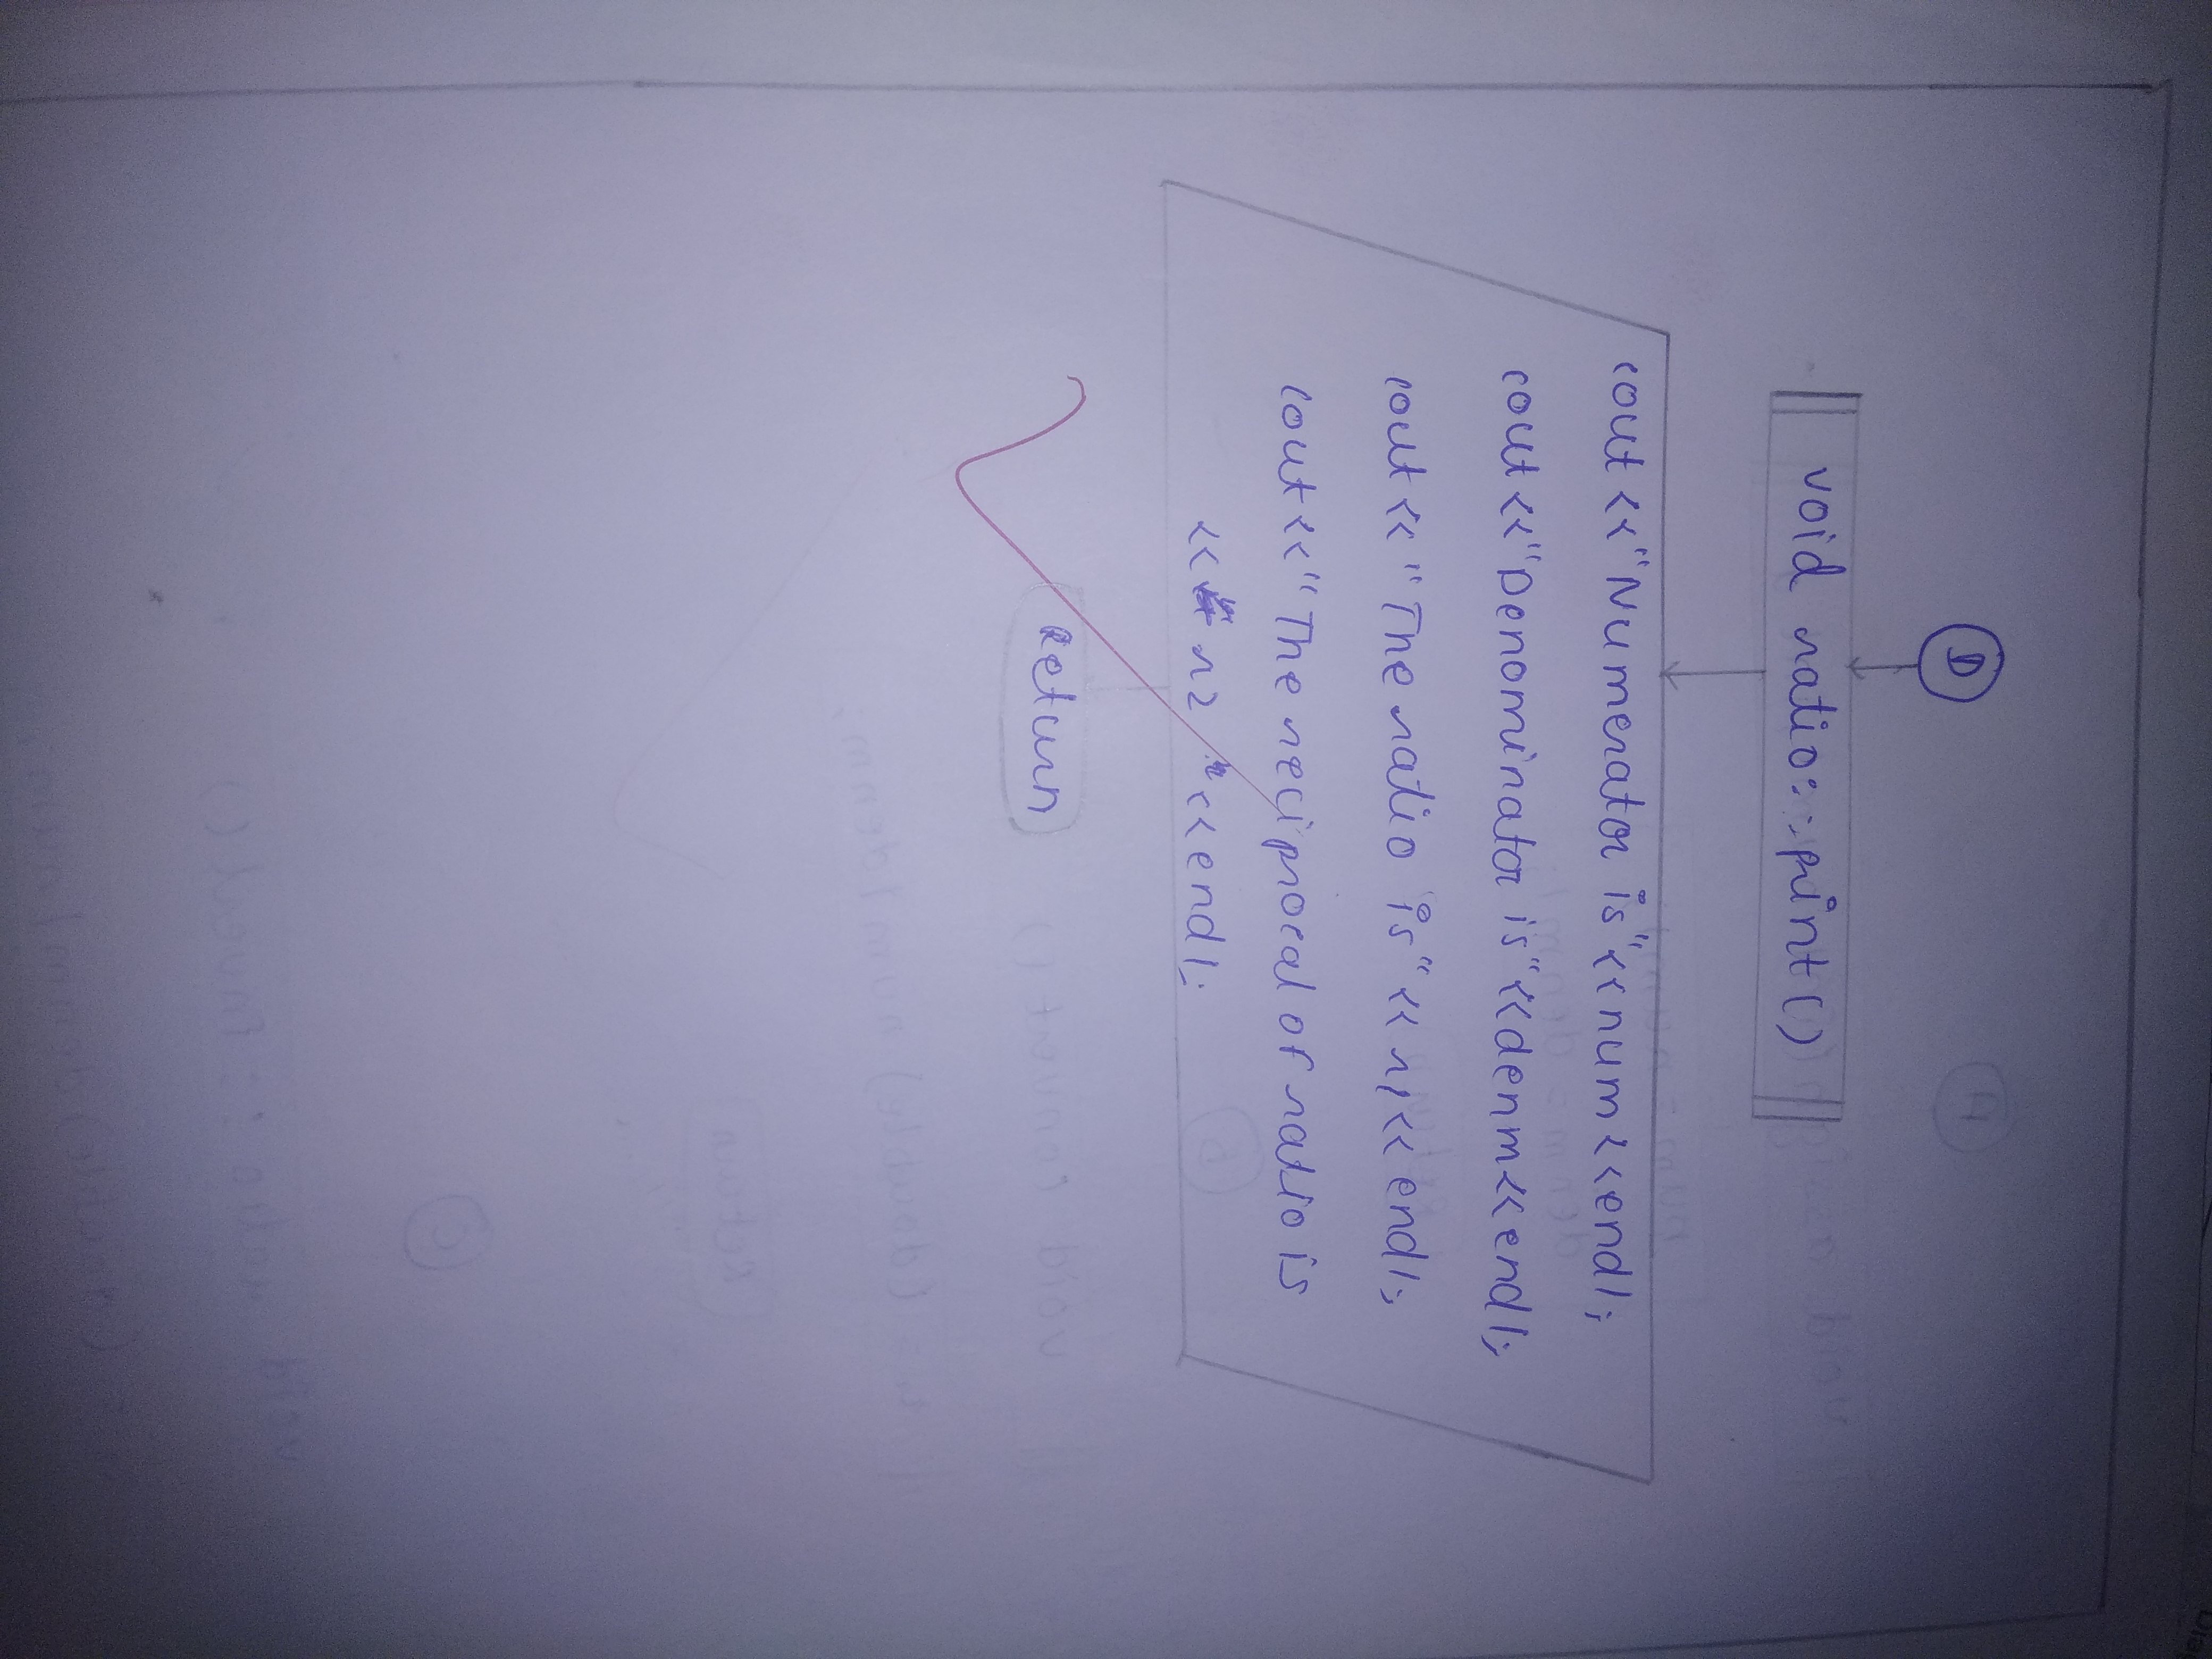 D
void ratio::print()
cout<<"Numerator is"<<num<<endl;
cout<<"Denominator is"<<denm<<endl;
cout<<"The ratio is"<<r1<<endl;
cout<<"The reciprocal of ratio is
<< r2 "<<endl;
Return